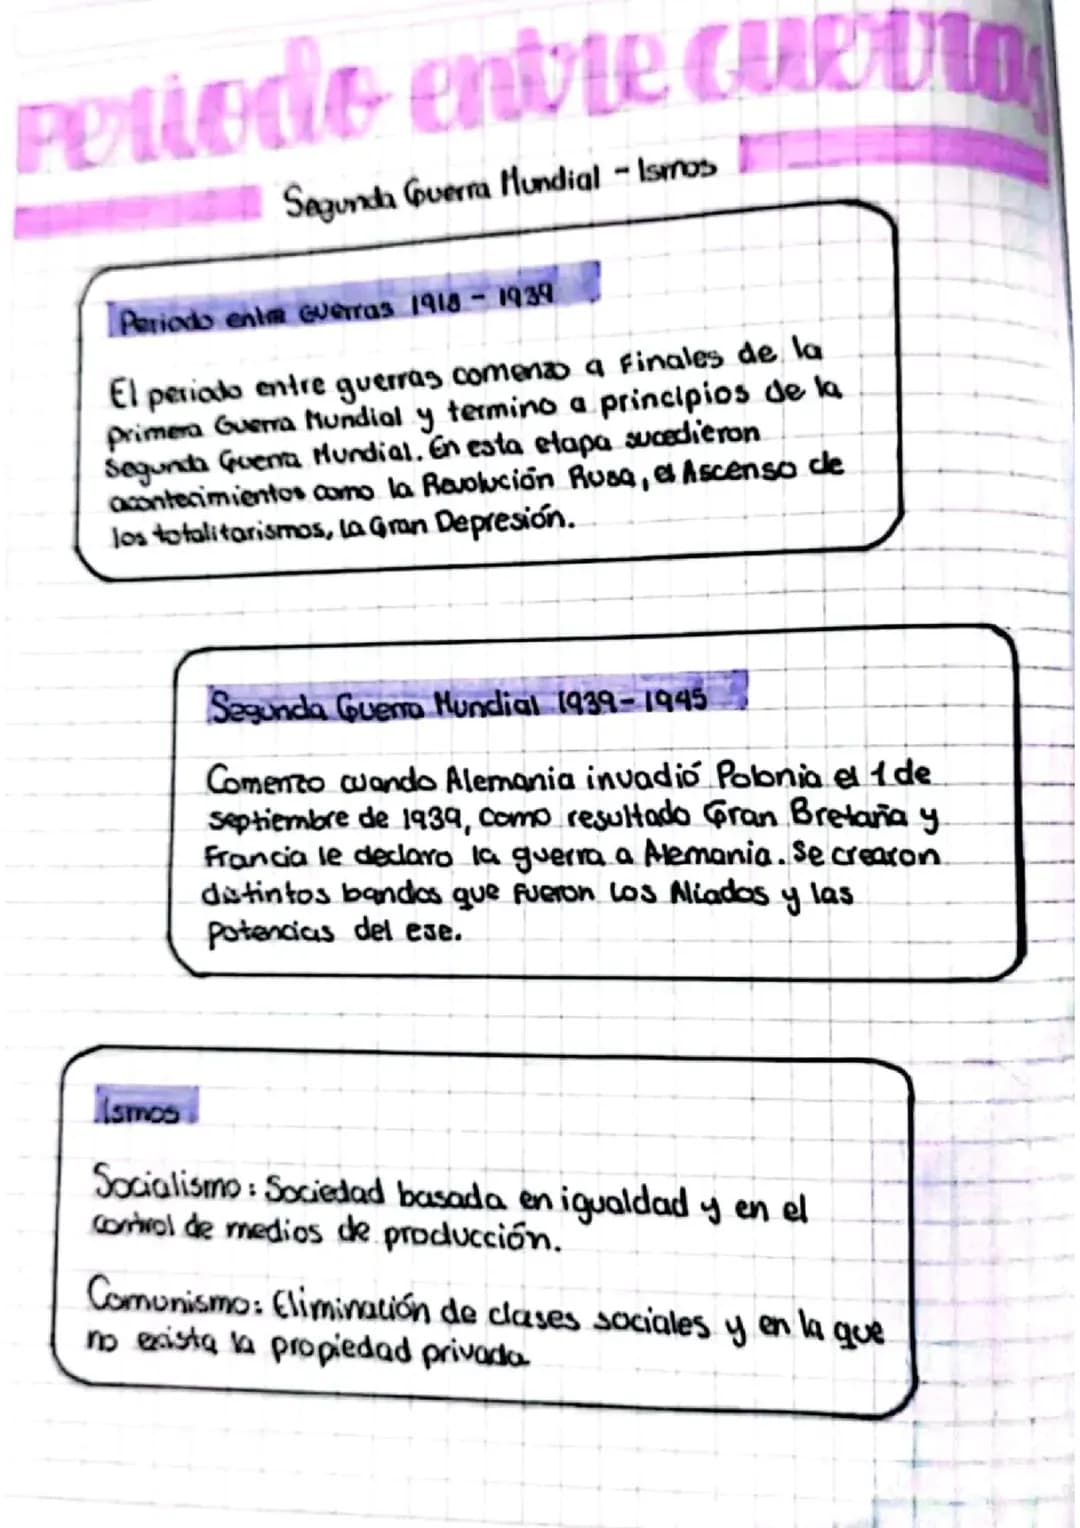 Periodo entre guerras
Segunda Guerra Mundial - Ismos
Periodo entre Guerras 1918 - 1939
El periodo entre guerras comenzo a Finales de la
primera Guerra Mundial y termino a principios de la
Segunda Guerra Mundial. En esta etapa sucedieron
acontecimientos como la Revolución Rusa, el Ascenso de
los totalitarismos, la Gran Depresión.
Segunda Guerra Mundial 1939-1945
Comenzo cuando Alemania invadió Polonia el 1 de
septiembre de 1939, Como resultado Gran Bretaña y
Francia le declaro la guerra a Alemania. Se crearon
distintos bandos que fueron los Aliados y las
potencias del ese.
Ismos
Socialismo: Sociedad basada en igualdad y en el
control de medios de producción.
Comunismo: Eliminación de clases sociales y en la que
no exista la propiedad privada